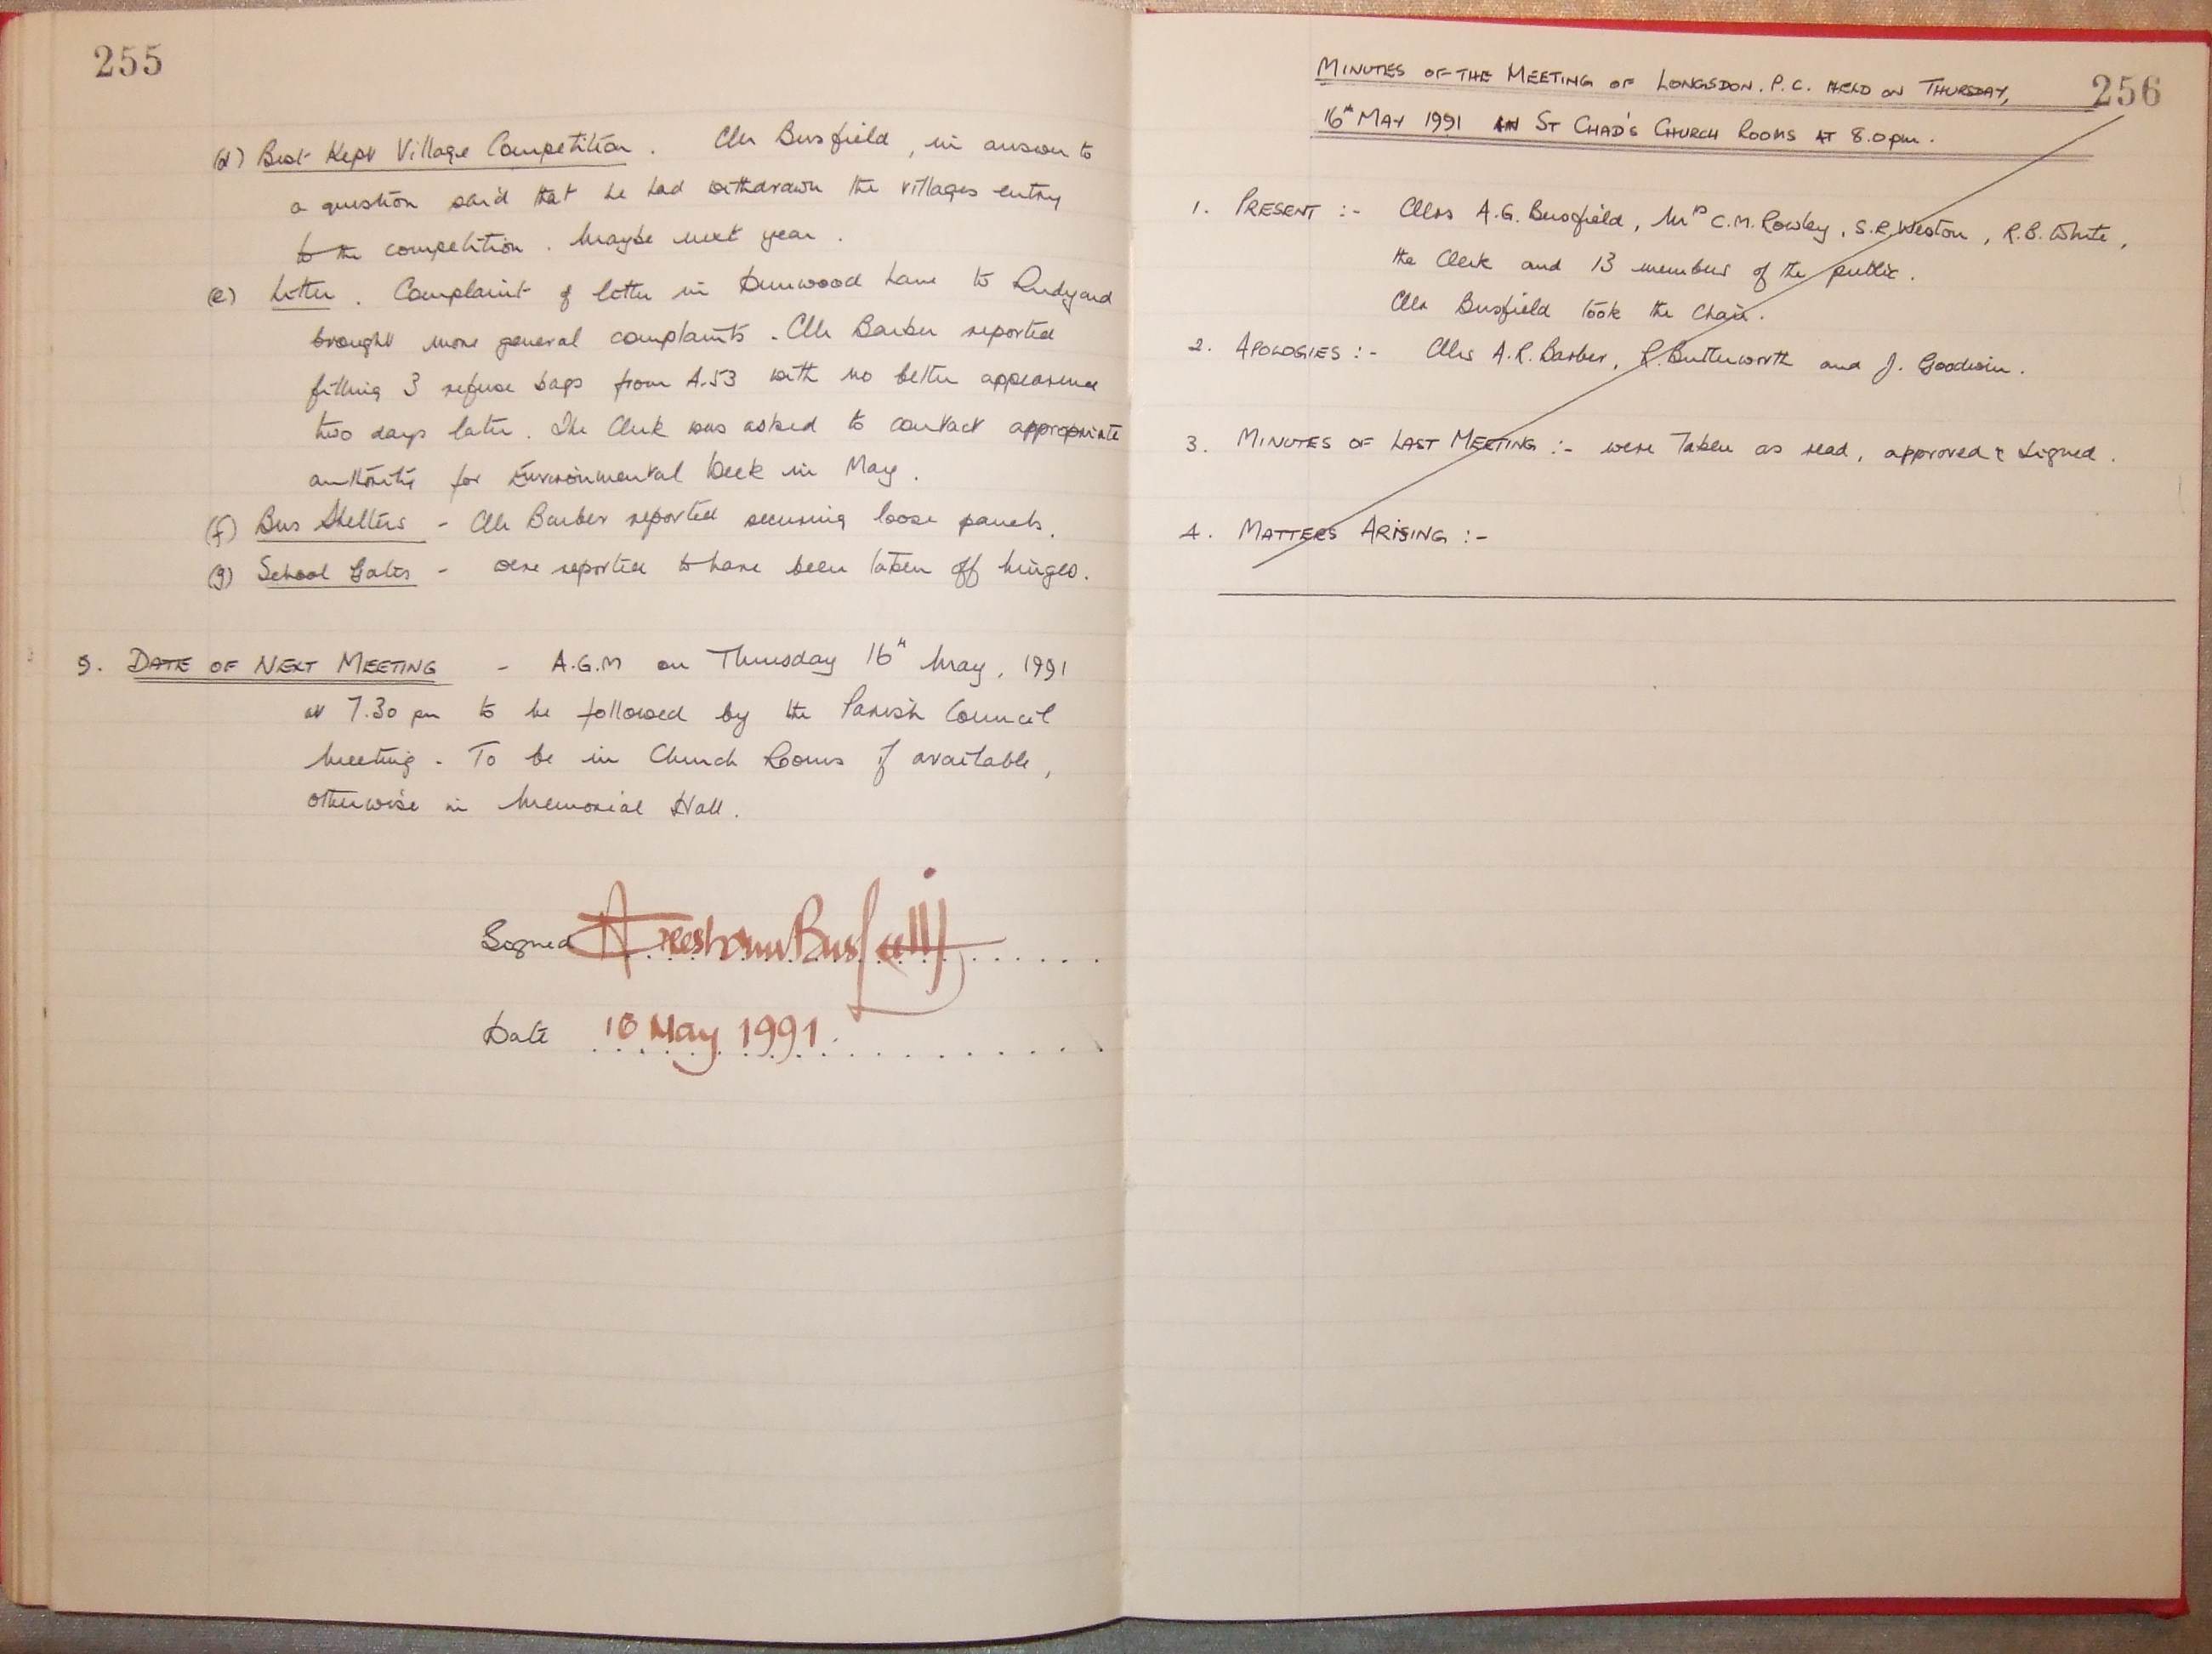 255
(d) Best Kept Village Competition. Cllr Busfield, in answer to
a question said that he had withdrawn the villages entry
to the competition. Maybe next year.
(e) Litter. Complaint of litter in Dunwood Lane to Rudyard
brought more general complaints. Cllr Barber reported
filling 3 refuse bags from A.53 with no better appearance
two days later. The Clerk was asked to contact appropriate
authority for Environmental Week in May.
(f) Bus Shelters - Cllr Barber reported securing loose panels.
(g) School Gates - were reported to have been taken off hinges.
9. DATE OF NEXT MEETING - A.G.M on Thursday 16th May, 1991
at 7.30 pm to be followed by the Parish Council
Meeting. To be in Church Rooms if available,
otherwise in Memorial Hall.
Signed A Gresham Busfield
Date 16 May 1991
256
MINUTES OF THE MEETING OF LONGSDON. P.C. HELD ON THURSDAY,
16th MAY 1991 IN ST CHAD'S CHURCH ROOMS AT 8.0pm.
1. PRESENT :- Cllrs A.G. Busfield, Mrs C.M. Rowley, S.R. Weston, R.B. White,
the Clerk and 13 members of the public.
Cllr Busfield took the Chair.
2. APOLOGIES :- Cllrs A.R. Barber, R. Butterworth and J. Goodwin.
3. MINUTES OF LAST MEETING :- were taken as read, approved & signed.
4. MATTERS ARISING :-